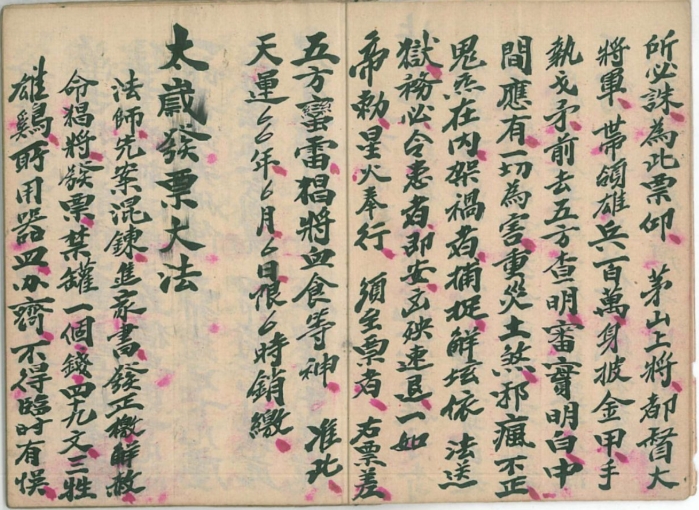 所必誅為此票仰　茅山上將都督大
將軍帶領雄兵百萬身披金甲手
執戈矛前去五方查明審實明白中
間應有一切為害重災土煞邪瘟不正
鬼炁在内架禍者捕捉解坛依　法送
獄務必令患者即安凶殃速退一如
帝勅星火奉行　須至票者　右票差
五方蠻雷猖將血食等神　准此
天運厶厶年厶月厶日限厶時銷繳
太歲發票大法
法師先案混鍊進家書發正檄解赦
命猖將發票某罐一個錢四九文三牲
雄鷄所用器皿办齊不得臨时有悮